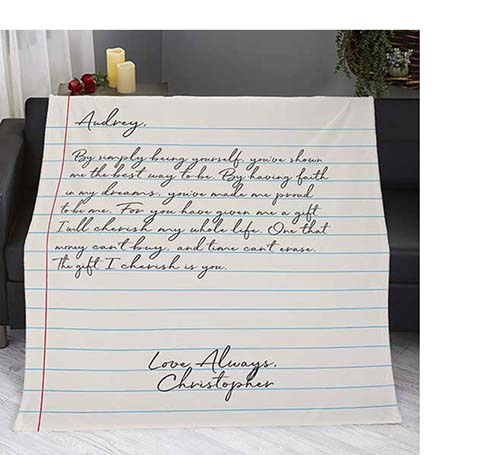 Audrey,
By simply being yourself, you've shown
me the best way to be. By having faith
in my dreams, you've made me proud
to be me. For you have given me a gift
I will cherish my whole life. One that
money can't buy, and time can't erase.
The gift I cherish is you.
Love Always,
Christopher